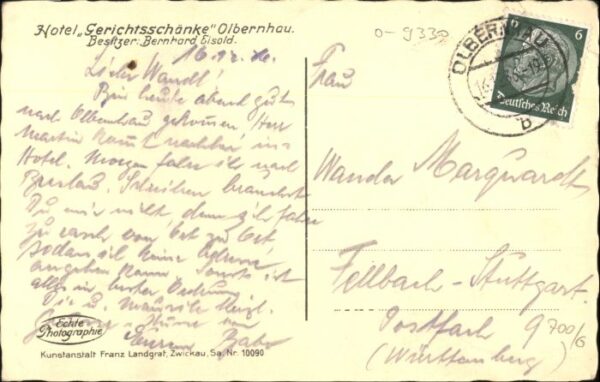 Hotel „Gerichtsschänke" Olbernhau.
Besitzer: Bernhard Eisold.
Bin heute abend gut
nach Olbernhau gekommen, Herr
Martin kam nachher ins
Hotel. Morgen fahre ich nach
Breslau. Schreiben brauchst
Du mir nicht, denn ich fahre
zu rasch von Ort zu Ort,
sodass ich keine Adresse
angeben kann. Sonst ist
alles in bester Ordnung
Echte
Photographie
Kunstanstalt Franz Landgraf, Zwickau, Sa. Nr. 10090
0-9332
OLBERNHAU
6
Deutsches Reich
Frau
Wanda Marquardt
Fellbach-Stuttgart.
Postfach 9
700/G
(Württemberg)